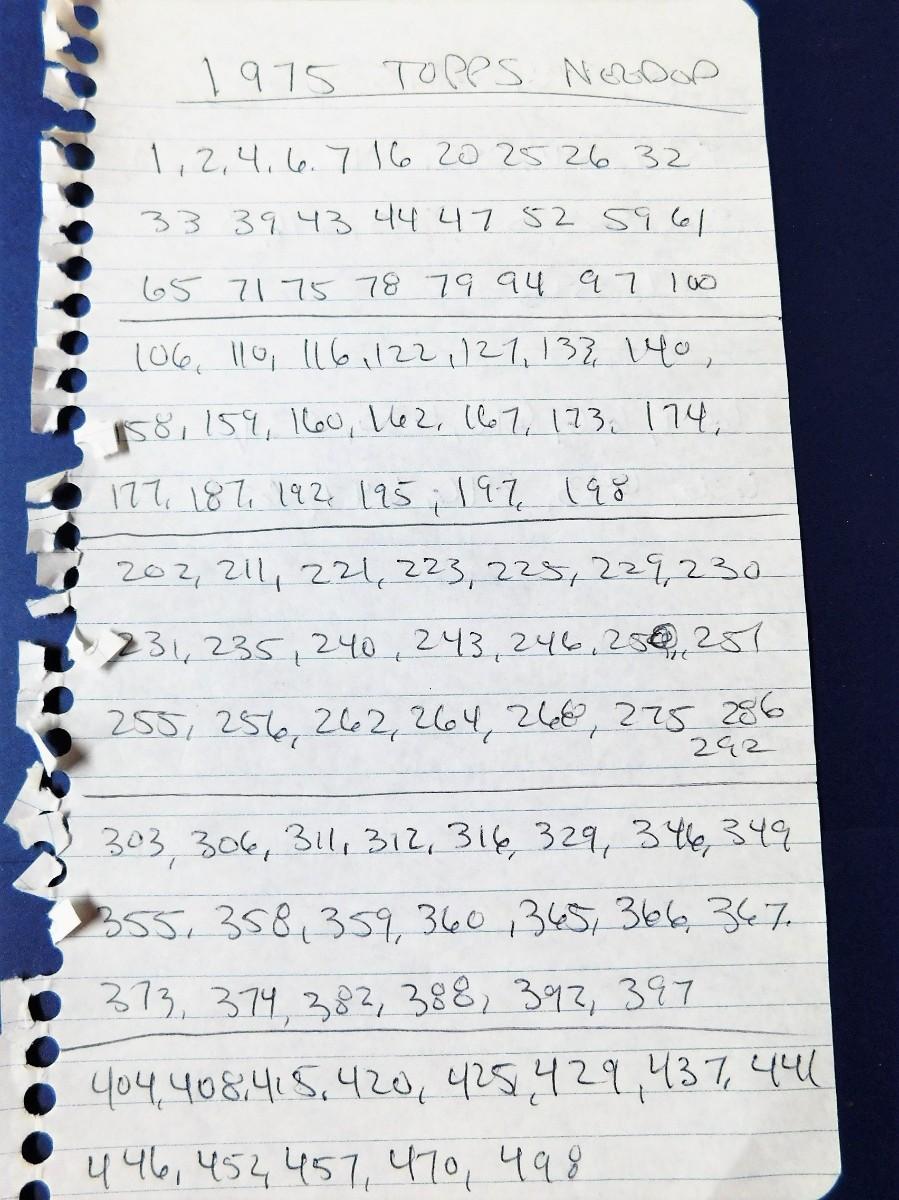 1975 TOPPS NEEDED
1, 2, 4, 6. 7 16 20 25 26 32
33 39 43 44 47 52 59 61
65 71 75 78 79 94 97 100
106, 110, 116, 122, 127, 133, 140,
158, 159, 160, 162, 167, 173, 174,
177, 187, 192, 195, 197, 198
202, 211, 221, 223, 225, 229, 230
231, 235, 240, 243, 246, 251
255, 256, 262, 264, 268, 275 286
292
303, 306, 311, 312, 316, 329, 346, 349
355, 358, 359, 360, 365, 366, 367.
373, 374, 382, 388, 392, 397
404, 408, 415, 420, 425, 429, 437, 441
446, 452, 457, 470, 498